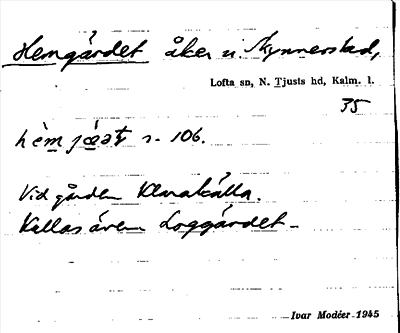 Hemgärdet åker u. Kynnerstad,
Lofta sn, N. Tjusts hd, Kalm. l.
35
hèmjæaṭ s. 106.
Vid gården Klarakälla.
Kallas även Loggärdet.
Ivar Modéer 1945